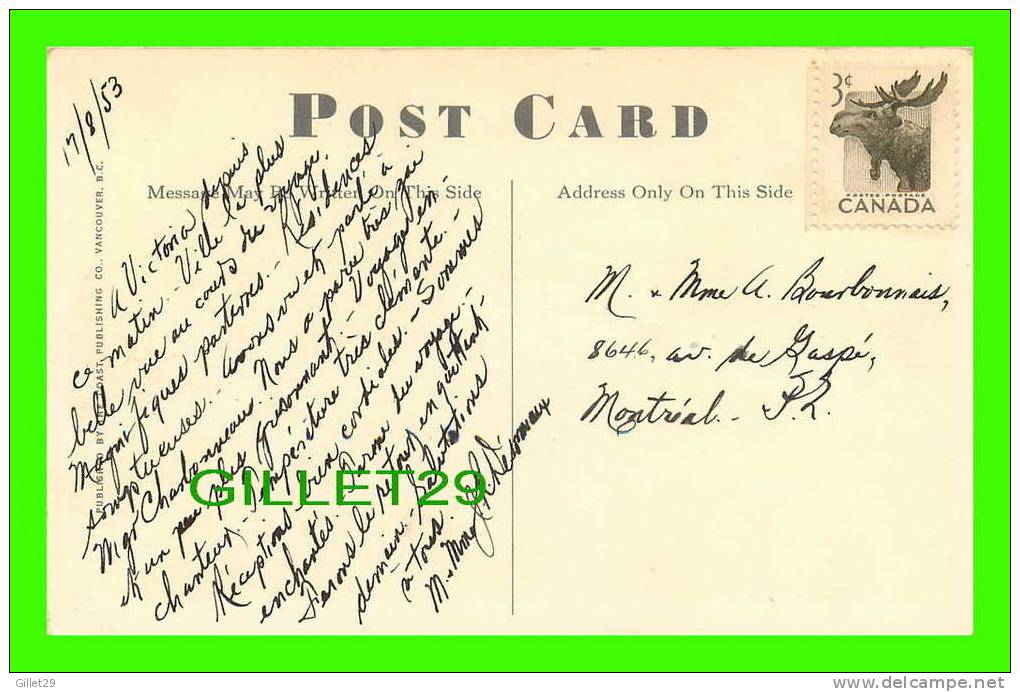 17/8/53
POST CARD
3¢
POSTES POSTAGE
CANADA
Message May Be Written On This Side
Address Only On This Side
PUBLISHED BY THE COAST PUBLISHING CO., VANCOUVER, B.C.
A Victoria depuis
ce matin.- Ville la plus
belle vue au cours du voyage.
Magnifiques parterres.- Résidences
somptueuses.- Avons vu et parlé à
Mgr Charbonneau. Nous a paru très gai
et un peu plus grisonnant.- Voyage en-
chanteur.- Température très clémente.
Réceptions bien cordiales.- Sommes
enchantés. du voyage.-
Ferons le retour en quittant
demain. Salutations
à tous.
M. & Mme
M. & Mme A. Bourbonnais,
8646, av. de Gaspé,
Montréal.- P.Q.
GILLET29
Gillet29
delcampe.net